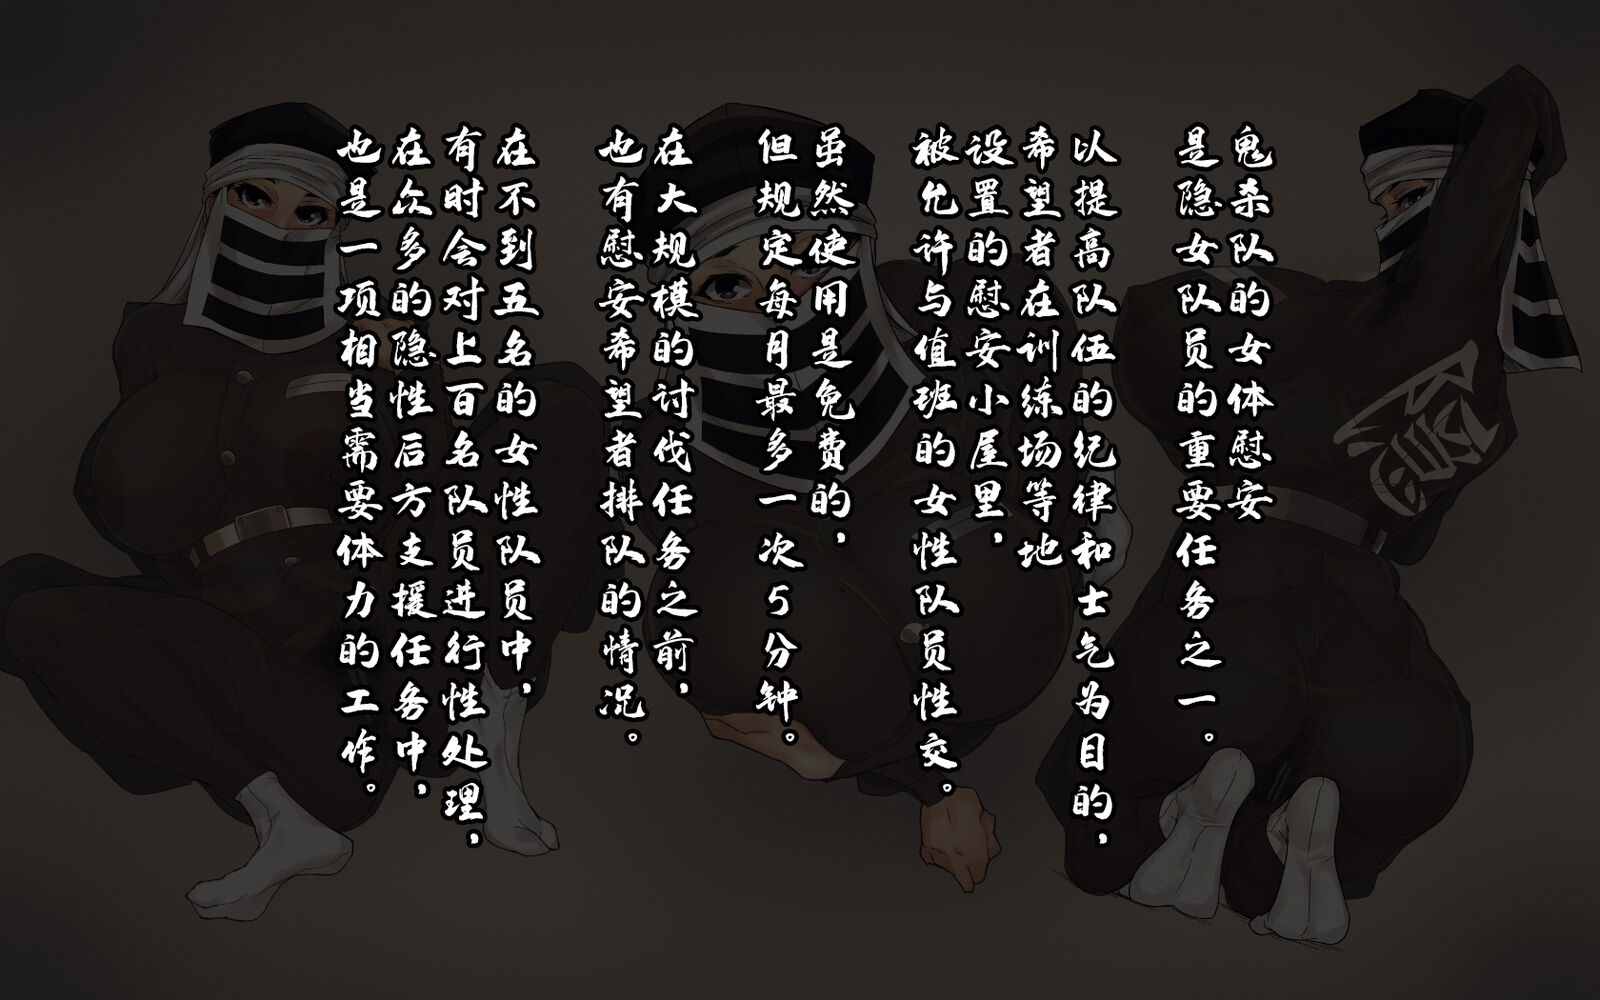 鬼杀队的女体慰安
是隐女队员的重要任务之一。
以提高队伍的纪律和士气为目的，
希望者在训练场等地
设置的慰安小屋里，
被允许与值班的女性队员性交。
虽然使用是免费的，
但规定每月最多一次5分钟。
在大规模的讨伐任务之前，
也有慰安希望者排队的情况。
在不到五名的女性队员中，
有时会对上百名队员进行性处理，
在众多的隐性后方支援任务中，
也是一项相当需要体力的工作。